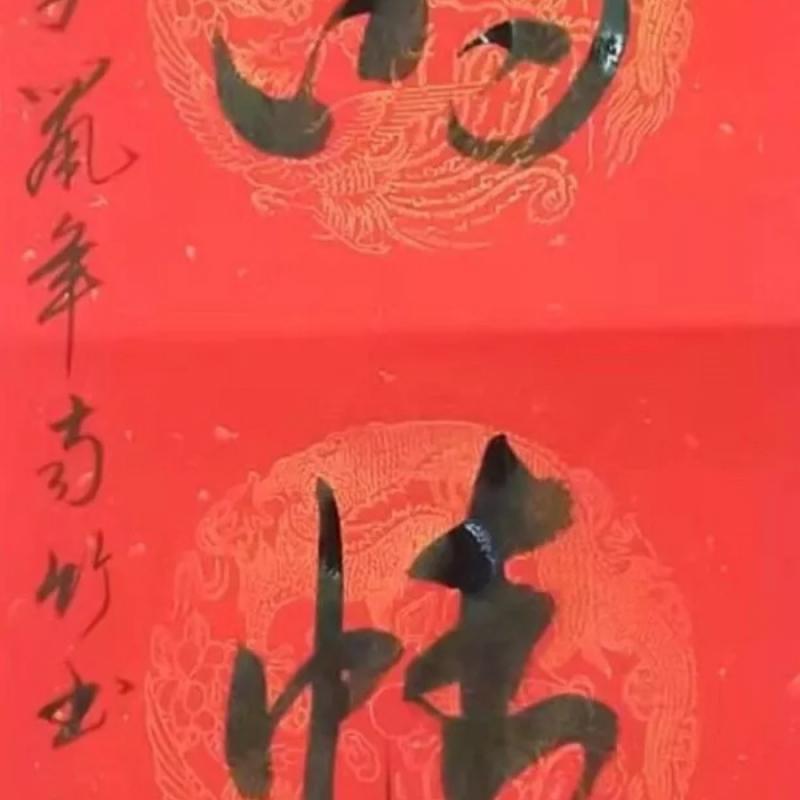 情
鼠年南竹书